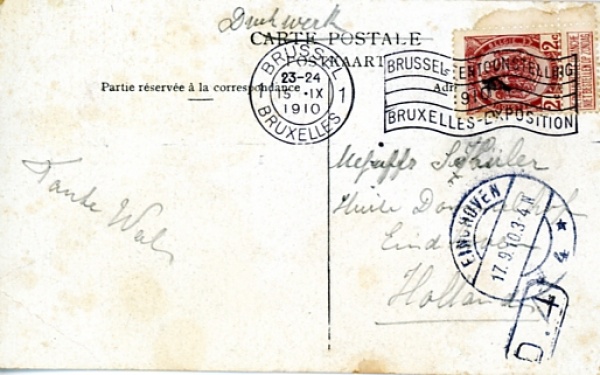 Drukwerk
CARTE POSTALE
POSTKAART
Partie réservée à la correspondance
Adr
BRUSSEL
23-24
15 · IX
1910
1
BRUXELLES
BRUSSEL-TENTOONSTELLING
BRUXELLES-EXPOSITION
Tante Wal
Huize
Eindhoven
Holland
EINDHOVEN
17.9.10.3-4N
4
D.4